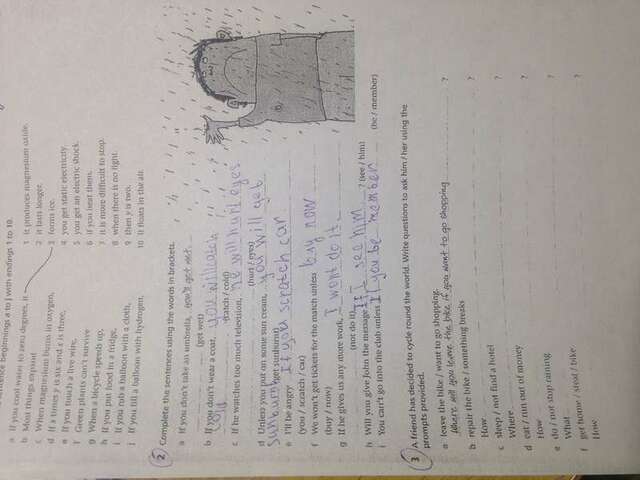 sentence beginnings a to J with endings 1 to 10.
a If you cool water to zero degrees, it
b Most things expand
c When magnesium burns in oxygen,
d If x times y is six and x is three,
e If you touch a live wire,
f Green plants can't survive
g When a bicycle speeds up,
h If you put food in a fridge,
i If you rub a balloon with a cloth,
j If you fill a balloon with hydrogen,
1 it produces magnesium oxide.
2 it lasts longer.
3 forms ice.
4 you get static electricity
5 you get an electric shock.
6 if you heat them.
7 it is more difficult to stop.
8 when there is no light.
9 then y is two.
10 it floats in the air.
2 Complete the sentences using the words in brackets.
a If you don't take an umbrella, you'll get wet.
(get wet)
b If you don't wear a coat, you will catch
cold (catch / cold)
c If he watches too much television, he will hurt eyes
(hurt / eyes)
d Unless you put on some sun cream, you will get
sunburn (get sunburnt)
e I'll be angry If you scratch car
(you / scratch / car)
f We won't get tickets for the match unless buy now
(buy / now)
g If he gives us any more work, I wont do it
(not do it)
h Will you give John the message If I see him ? (see / him)
i You can't go into the club unless If you be member
(be / member)
3 A friend has decided to cycle round the world. Write questions to ask him / her using the
prompts provided.
a leave the bike / want to go shopping.
Where will you leave the bike if you want to go shopping ?
b repair the bike / something breaks
How ?
c sleep / not find a hotel
Where ?
d eat / run out of money
How ?
e do / not stop raining
What ?
f get home / steal / bike
How ?